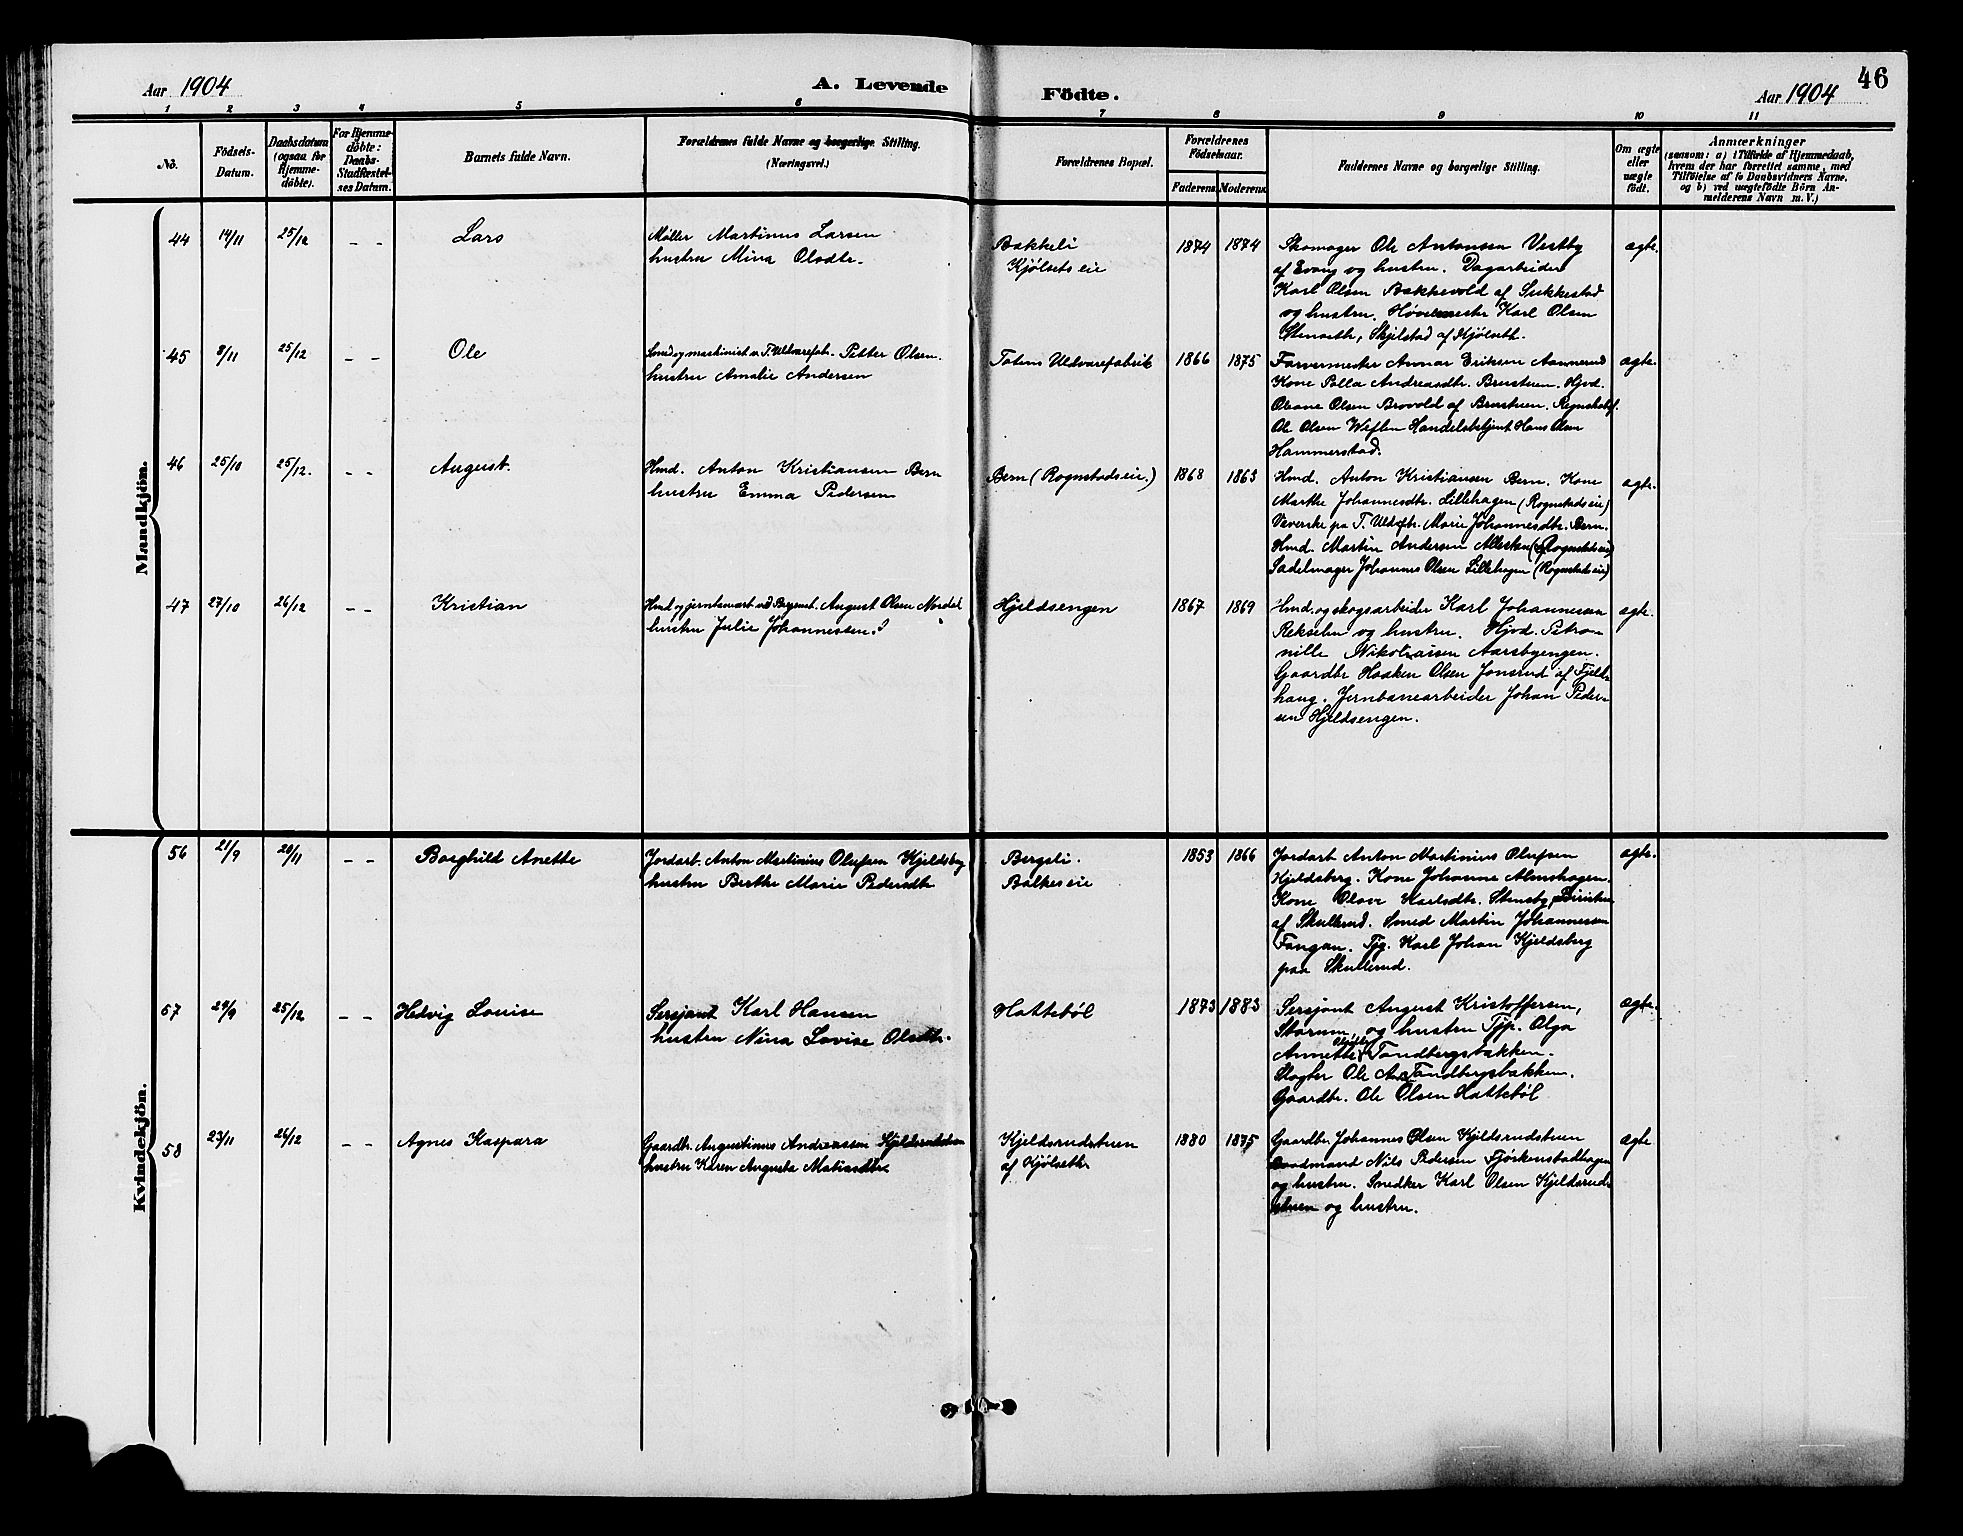 46
Aar 1904
A. Levende Födte.
Aar 1904
1 2 3 4 5 6 7 8 9 10 11
No.
Födsels-Datum.
Daabsdatum (ogsaa for Hjemmedöbte).
For Hjemmedöbte: Daabs-Stadfæstelses Datum.
Barnets fulde Navn.
Forældrenes fulde Navne og borgerlige Stilling.
(Næringsvei.)
Forældrenes Bopæl.
Forældrenes Födselsaar.
Faderens. Moderens.
Faddernes Navne og borgerlige Stilling.
Om ægte eller uægte födt.
Anmærkninger
(saasom: a) i Tilfælde af Hjemmedaab,
hvem der har forrettet samme, med
Tilföielse af to Daabsvidners Navne,
og b) ved uægtefödte Börn An-
melderens Navn m. V.)
Mandkjön.
44 14/11 25/12 - - Lars
Møller Martinus Larsen
hustru Mina Olsdtr.
Bakkeli
Kjölsets eie
1874 1874
Skomager Ole Antonsen Vestby
af Evang og hustru. Dagarbeider
Karl Olsen Bakkevold af Sukkestad
og hustru. Karl Olsen
Stenseth, Skjelstad af Kjölseth.
ægte.
45 8/11 25/12 - - Ole
Smed og maskinist v. T. Uldvarefabr. Petter Olsen.
hustru Amalie Andersen
Totens Uldvarefabrik
1866 1875
Farvermester Annar Eriksen Aannerud
Kone Polla Andreasdtr. Brustuen. Hjvd.
Oleane Olsen Brovold af Brustuen. Regnskabsf.
Ole Olsen Weflen Handelsbetjent Hans Olsen
Hammerstad.
ægte.
46 25/10 25/12. - - August.
Hmd. Anton Kristiansen Bern
hustru Emma Pedersen
Bern (Rognstadseie.)
1868 1863
Hmd. Anton Kristiansen Bern. Kone
Marthe Johannesdtr. Lillehagen (Rognstadseie)
Væverske pa T. Uldfbr. Marie Johannesdtr. Bern.
Hmd. Martin Andersen (Rognstadseie)
Sadelmager Johannes Olsen Lillehagen (Rognstadseie)
ægte.
47 27/10 26/12 - - Kristian
Hmd og August Olsen Nordal
hustru Julie Johannessen.
Hjeldsengen
1867 1869
Hmd. og skogsarbeider Karl Johannessen
Rekselen og hustru. Hjvd. Petro-
nille Nikolaisen Aarsbyengen.
Gaardbr Haaken Olsen Jonsrud af Fjeld-
haug. Jernbanearbeider Johan Peder-
sen Hjeldsengen.
ægte.
Kvindekjön.
56 21/9 20/11 - - Borghild Anette
Jordarb. Anton Martinius Olufsen Kjeldsberg
hustru Berthe Marie Pedersdtr
Bergsli.
Balkeseie
1853 1866
Jordarb Anton Martinius Olufsen
Kjeldsberg. Kone Johanne Almshagen.
Kone Olave Karlsdtr. Stensby,
af Skullerud. Smed Martin Johannessen
Fangan. Tjg. Karl Johan Kjeldsberg
paa Skullerud.
ægte.
57 29/9 25/12 - - Hedvig Louise
Sersjant Karl Hansen
hustru Nina Lovise Olsdtr.
Hattebøl
1873 1883
Sersjant August Kristoffersen,
Starum, og hustru Tjp. Olga
Annette Tandbergsbakken.
Slagter Ole A. Tandbergsbakken.
Gaardbr. Ole Olsen Hattebøl
ægte.
58 23/11 26/12 - - Agnes Kaspara
Gaardbr. Augustinus Andreassen Kjeldsrudstuen
hustru Karen Augusta Matiasdtr
Kjeldsrudstuen
af Kjölseth
1880 1875
Gaardbr. Johannes Olsen Kjeldsrudstuen
Baadmand Nils Pedersen Fjörkenstadhagen
og hustru. Snedker Karl Olsen Kjeldsrud-
stuen og hustru.
ægte